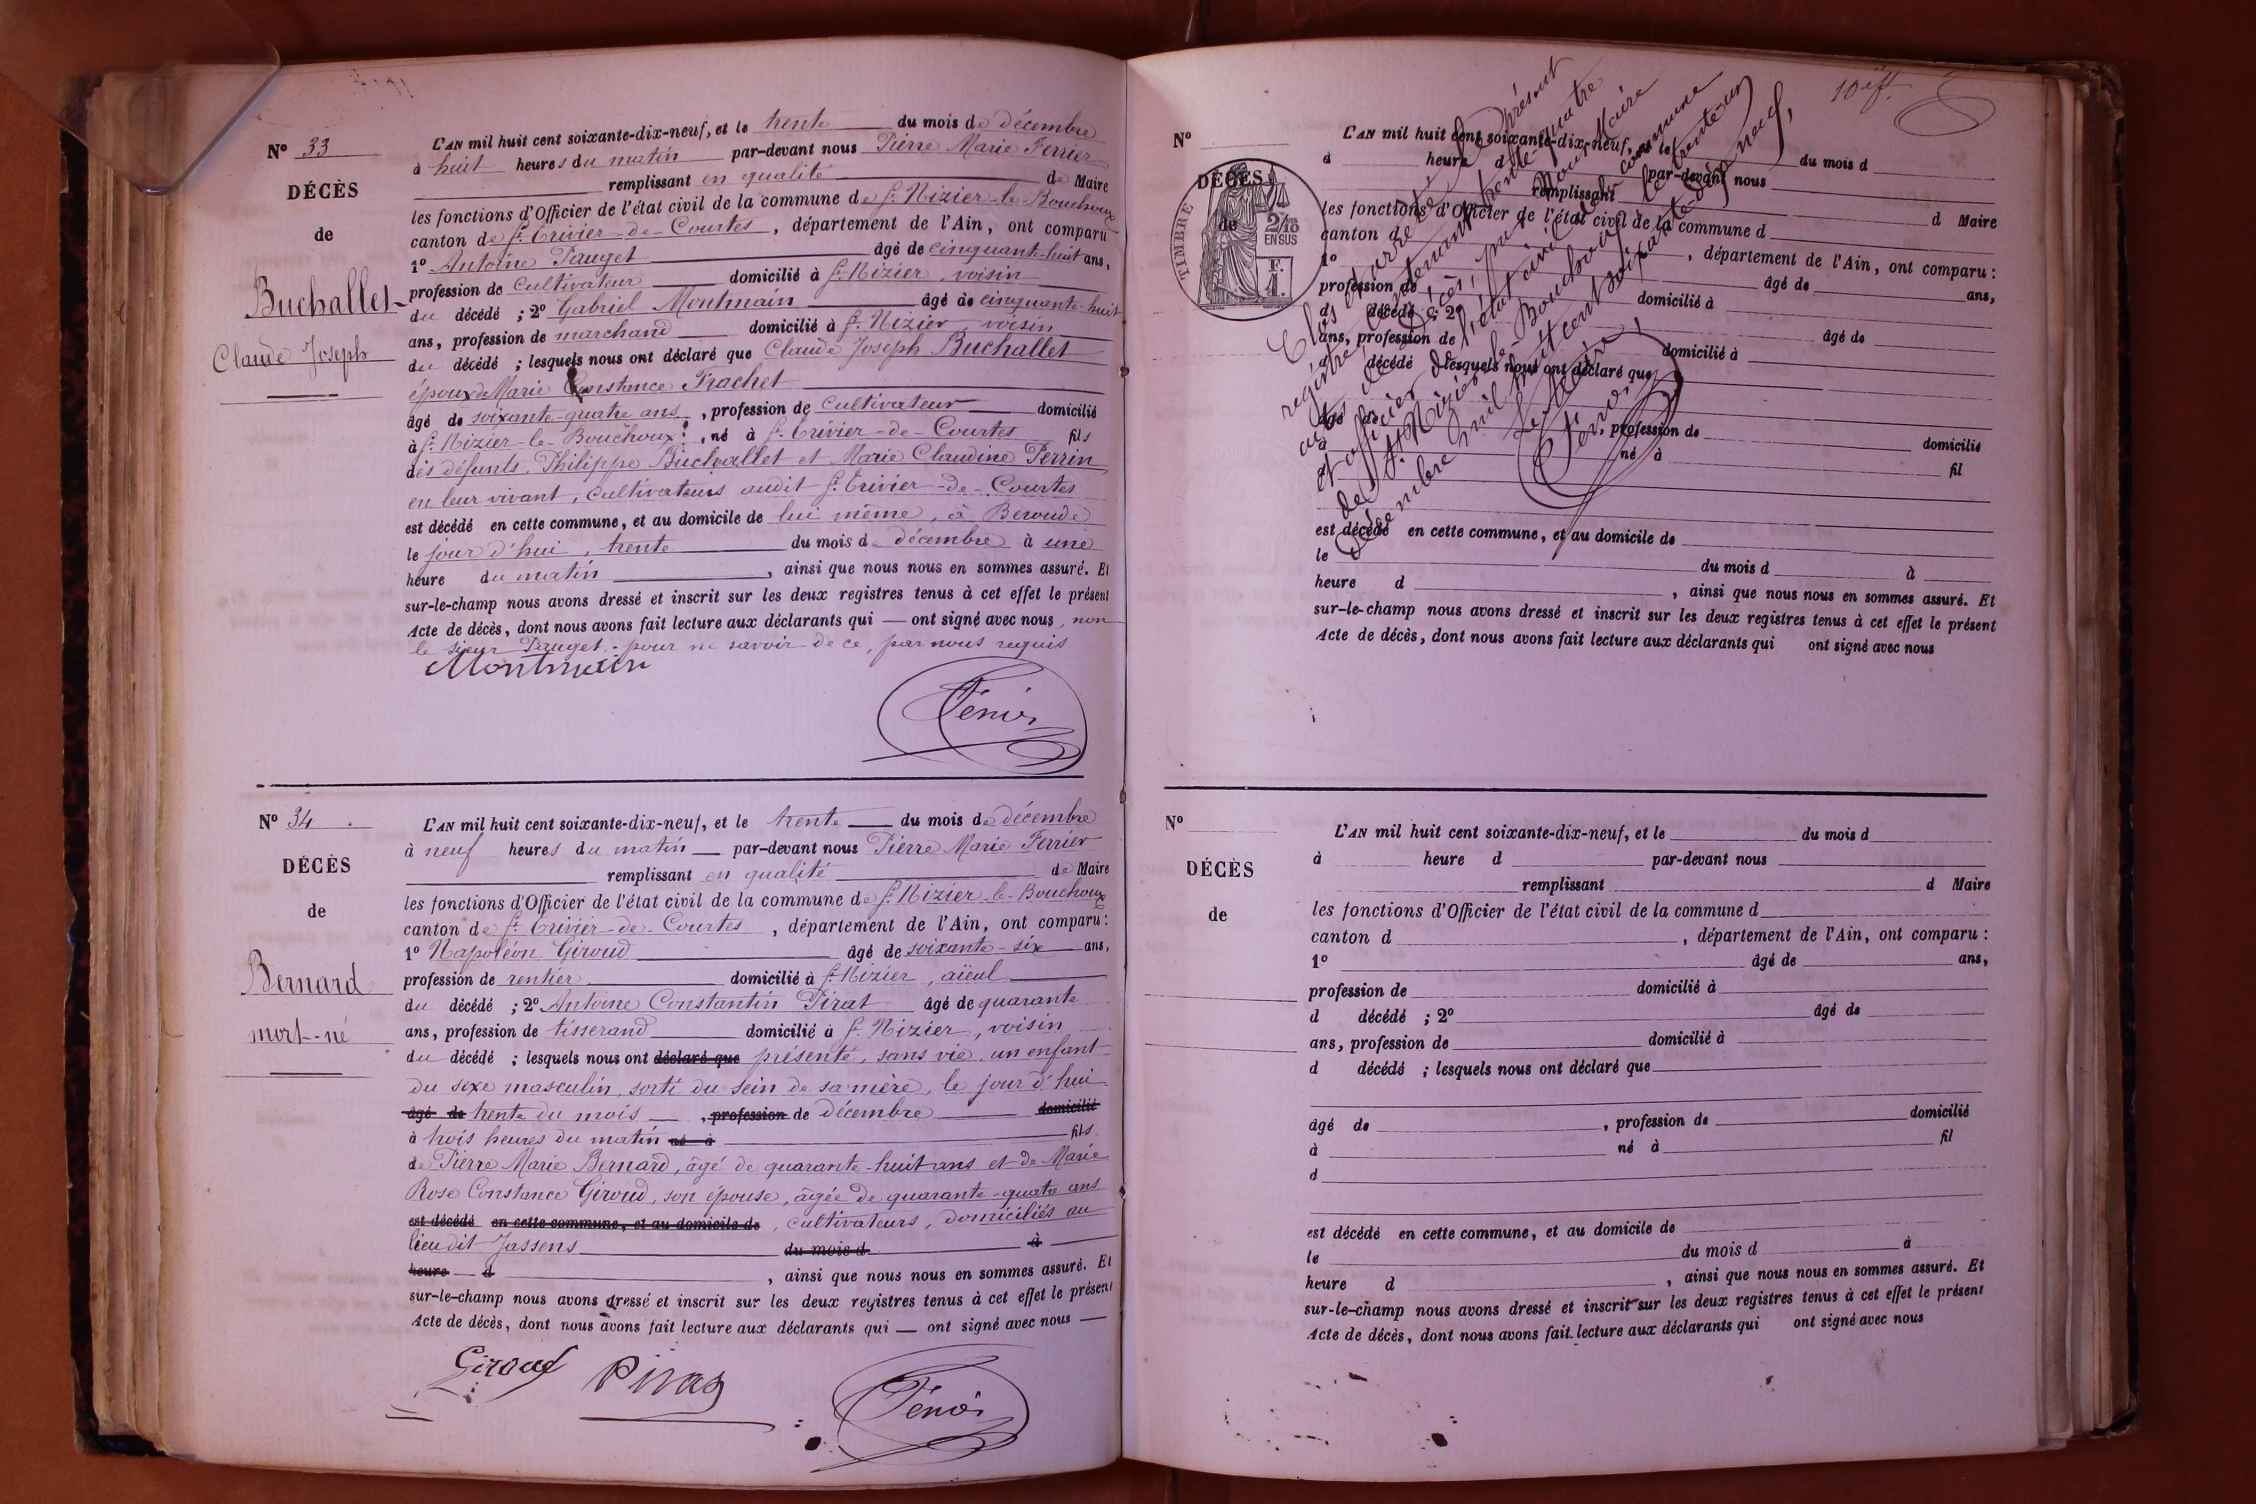 Nº 33
DÉCÈS
de
Buchallet
Claude Joseph
L'AN mil huit cent soixante-dix-neuf, et le trente du mois de décembre
à huit heures du matin par-devant nous Pierre Marie Ferrier
remplissant en qualité de Maire
les fonctions d'Officier de l'état civil de la commune de St. Nizier-le-Bouchoux
canton de St. Trivier-de-Courtes, département de l'Ain, ont comparu
1º Antoine Pauget âgé de cinquante-huit ans,
profession de cultivateur domicilié à St. Nizier, voisin
du décédé ; 2º Gabriel Montmain âgé de cinquante-huit
ans, profession de marchand domicilié à St. Nizier, voisin
du décédé ; lesquels nous ont déclaré que Claude Joseph Buchallet
époux de Marie Constance Trachet
âgé de soixante-quatre ans, profession de cultivateur domicilié
à St. Nizier-le-Bouchoux, né à St. Trivier-de-Courtes fils
des défunts Philippe Buchallet et Marie Claudine Perrin
en leur vivant, cultivateurs audit St. Trivier-de-Courtes
est décédé en cette commune, et au domicile de lui même, à Beroude
le jour d'hui, trente du mois de décembre à une
heure du matin, ainsi que nous nous en sommes assuré. Et
sur-le-champ nous avons dressé et inscrit sur les deux registres tenus à cet effet le présent
Acte de décès, dont nous avons fait lecture aux déclarants qui — ont signé avec nous, non
le sieur Pauget, pour ne savoir de ce, par nous requis
Montmain
Nº 34
DÉCÈS
de
Bernard
mort-né
L'AN mil huit cent soixante-dix-neuf, et le trente du mois de décembre
à neuf heures du matin par-devant nous Pierre Marie Ferrier
remplissant en qualité de Maire
les fonctions d'Officier de l'état civil de la commune de St. Nizier-le-Bouchoux
canton de St. Trivier-de-Courtes, département de l'Ain, ont comparu :
1º Napoléon Giroud âgé de soixante-six ans,
profession de rentier domicilié à St. Nizier, aïeul
du décédé ; 2º Antoine Constantin Pirat âgé de quarante
ans, profession de tisserand domicilié à St. Nizier, voisin
du décédé ; lesquels nous ont déclaré que présenté, sans vie, un enfant
du sexe masculin, sorti du sein de sa mère, le jour d'hui
âgé de trente du mois, profession de décembre domicilié
à trois heures du matin né à fils
de Pierre Marie Bernard, âgé de quarante-huit ans et de Marie
Rose Constance Giroud, son épouse, âgée de quarante-quatre ans
est décédé en cette commune, et au domicile de, cultivateurs, domiciliés au
lieu dit Jassens du mois d à
heure d, ainsi que nous nous en sommes assuré. Et
sur-le-champ nous avons dressé et inscrit sur les deux registres tenus à cet effet le présent
Acte de décès, dont nous avons fait lecture aux déclarants qui — ont signé avec nous —
Giroud Pirat
Nº
DÉCÈS
de
TIMBRE
2/10
EN SUS
F.
L'AN mil huit cent soixante-dix-neuf, et le du mois d
à heure d par-devant nous
remplissant d Maire
les fonctions d'Officier de l'état civil de la commune d
canton d, département de l'Ain, ont comparu :
1º âgé de ans,
profession de domicilié à
d décédé ; 2º âgé de
ans, profession de domicilié à
d décédé lesquels nous ont déclaré que
âgé de, profession de domicilié
à né à fil
est décédé en cette commune, et au domicile de
le du mois d à
heure d, ainsi que nous nous en sommes assuré. Et
sur-le-champ nous avons dressé et inscrit sur les deux registres tenus à cet effet le présent
Acte de décès, dont nous avons fait lecture aux déclarants qui ont signé avec nous
Clos et arrêté le présent
registre contenant trente-quatre
actes de décès, par nous, Maire
et officier de l'état civil de la commune
de St. Nizier-le-Bouchoux, le trente-un
décembre mil huit cent soixante-dix-neuf,
Le Maire,
Nº
DÉCÈS
de
L'AN mil huit cent soixante-dix-neuf, et le du mois d
à heure d par-devant nous
remplissant d Maire
les fonctions d'Officier de l'état civil de la commune d
canton d, département de l'Ain, ont comparu :
1º âgé de ans,
profession de domicilié à
d décédé ; 2º âgé de
ans, profession de domicilié à
d décédé ; lesquels nous ont déclaré que
âgé de, profession de domicilié
à né à fil
d
est décédé en cette commune, et au domicile de
le du mois d à
heure d, ainsi que nous nous en sommes assuré. Et
sur-le-champ nous avons dressé et inscrit sur les deux registres tenus à cet effet le présent
Acte de décès, dont nous avons fait lecture aux déclarants qui ont signé avec nous